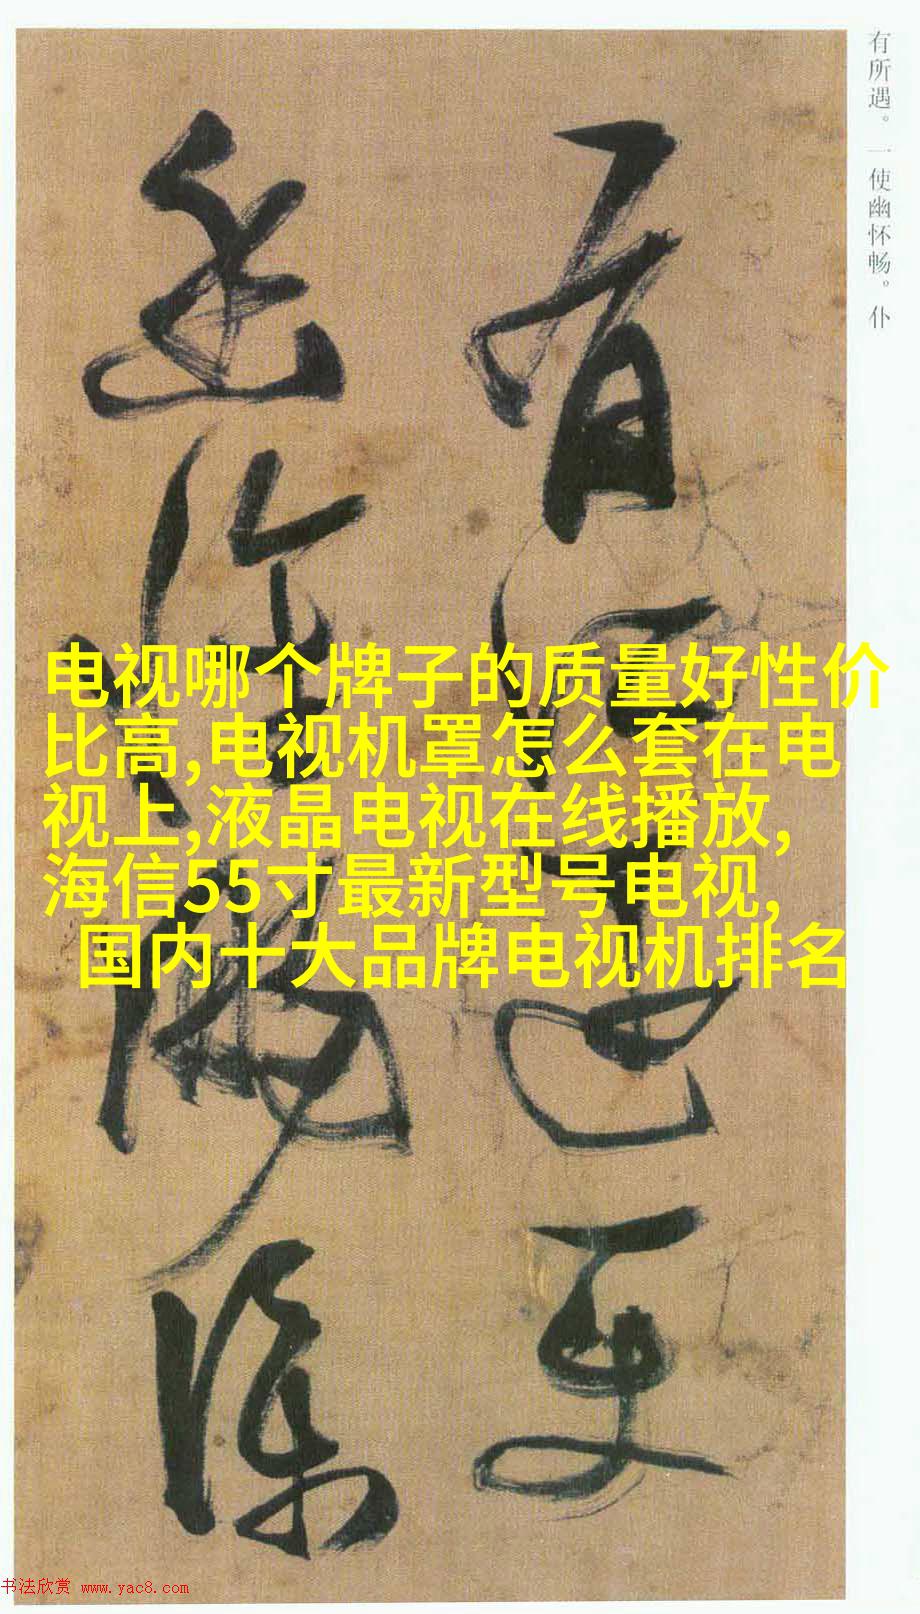 有所遇。一使幽怀畅。仆
有所遇一使
幽怀畅仆
电视哪个牌子的质量好性价
比高,电视机罩怎么套在电
视上,液晶电视在线播放,
海信55寸最新型号电视,
国内十大品牌电视机排名
书法欣赏 www.yac8.com